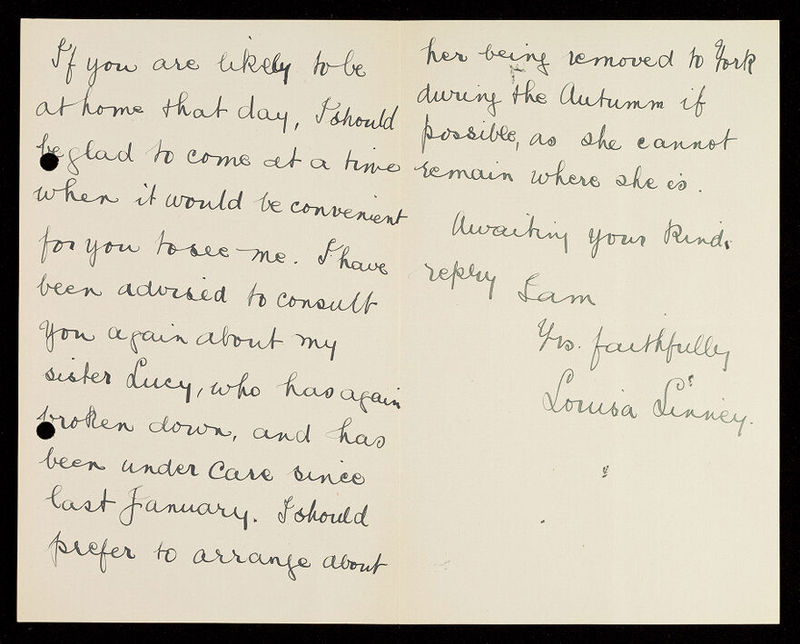 If you are likely to be
at home that day, I should
be glad to come at a time
when it would be convenient
for you to see me. I have
been advised to consult
you again about my
sister Lucy, who has again
broken down, and has
been under care since
last January. I should
prefer to arrange about
her being removed to York
during the Autumn if
possible, as she cannot
remain where she is.
Awaiting your kind
reply I am
Yrs. faithfully
Louisa Linney.